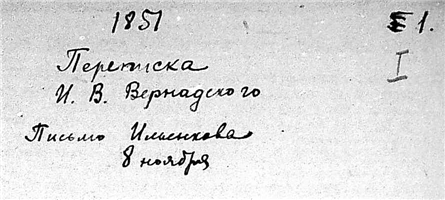 1851
1.
I
Переписка
И. В. Вернадского
Письмо Ильенкова
8 ноября